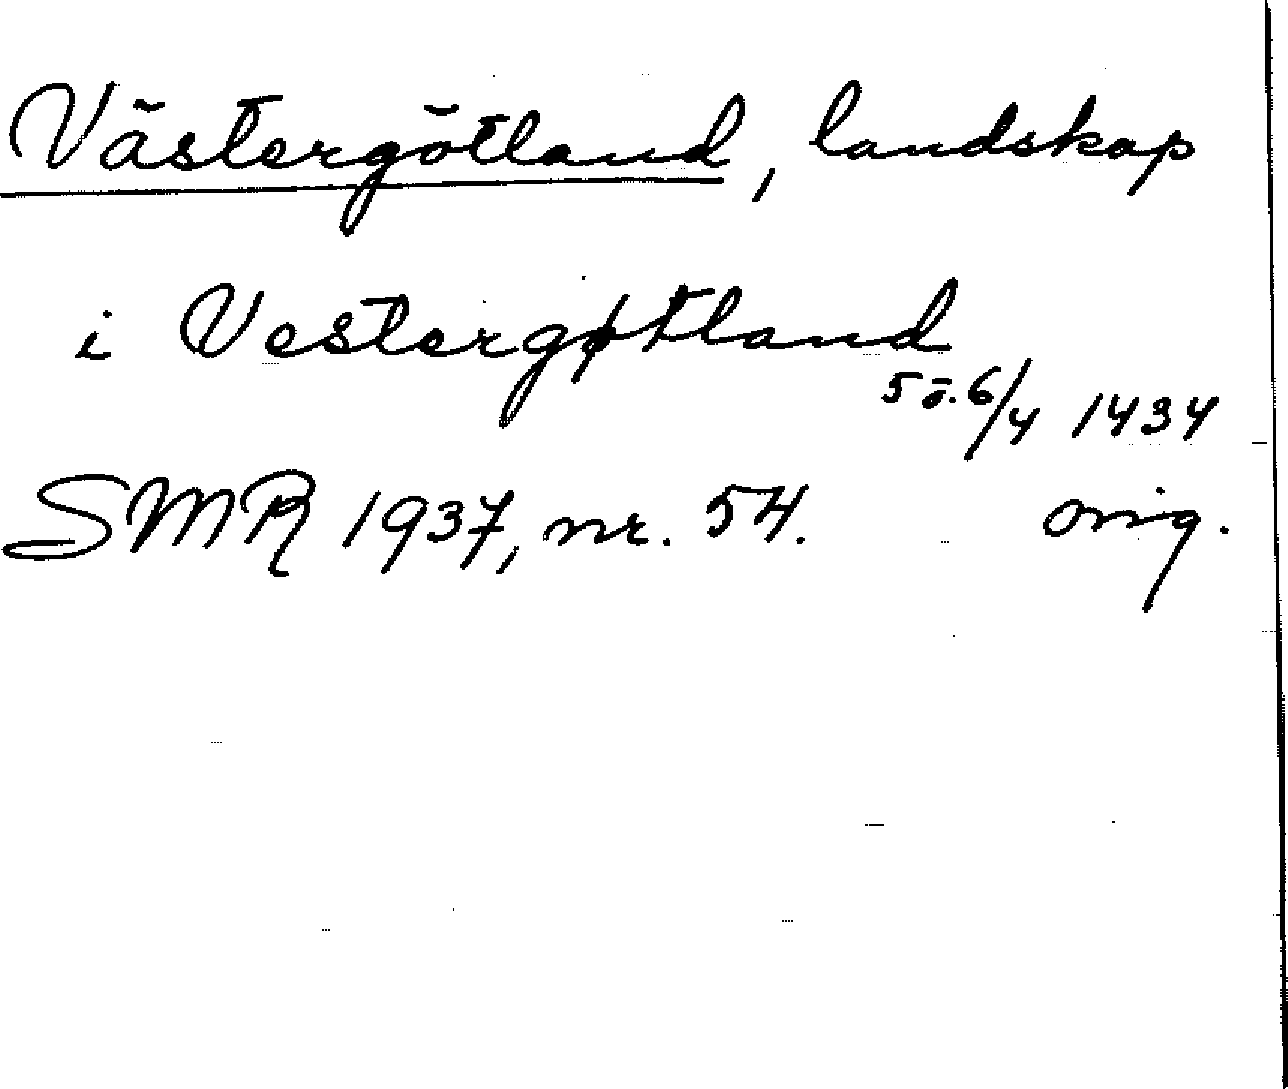 Västergötland, landskap
i Vestergøtland
5 ö. 6/4 1434
SMR 1937, nr. 54. orig.